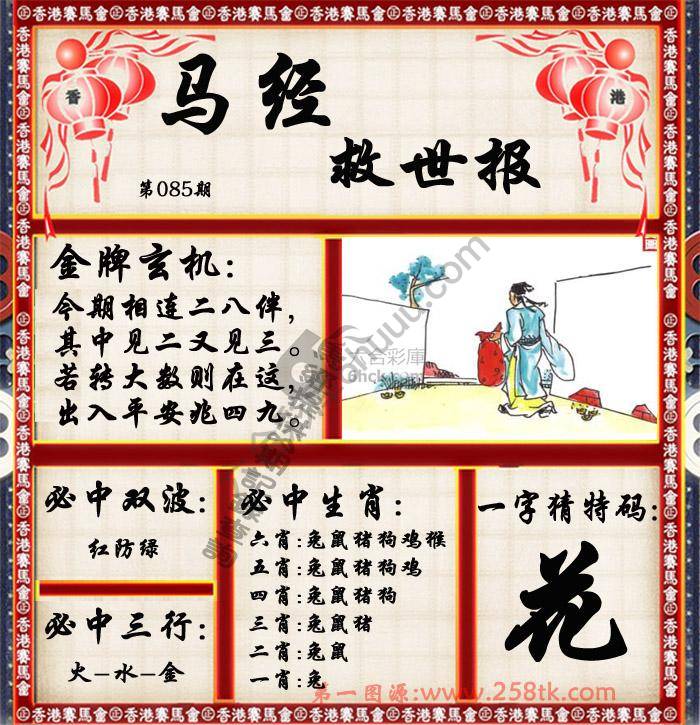 香港賽馬會㊣香港賽馬會㊣香港賽馬會㊣香港賽馬會㊣香港賽馬會
香
港
马经
救世报
第085期
金牌玄机:
今期相连二八伴,
其中见二又见三。
若转大数则在这,
出入平安兆四九。
必中双波:
红防绿
必中三行:
火-水-金
必中生肖:
六肖:兔鼠猪狗鸡猴
五肖:兔鼠猪狗鸡
四肖:兔鼠猪狗
三肖:兔鼠猪
二肖:兔鼠
一肖:兔
一字猜特码:
花
第一图源:www.258tk.com